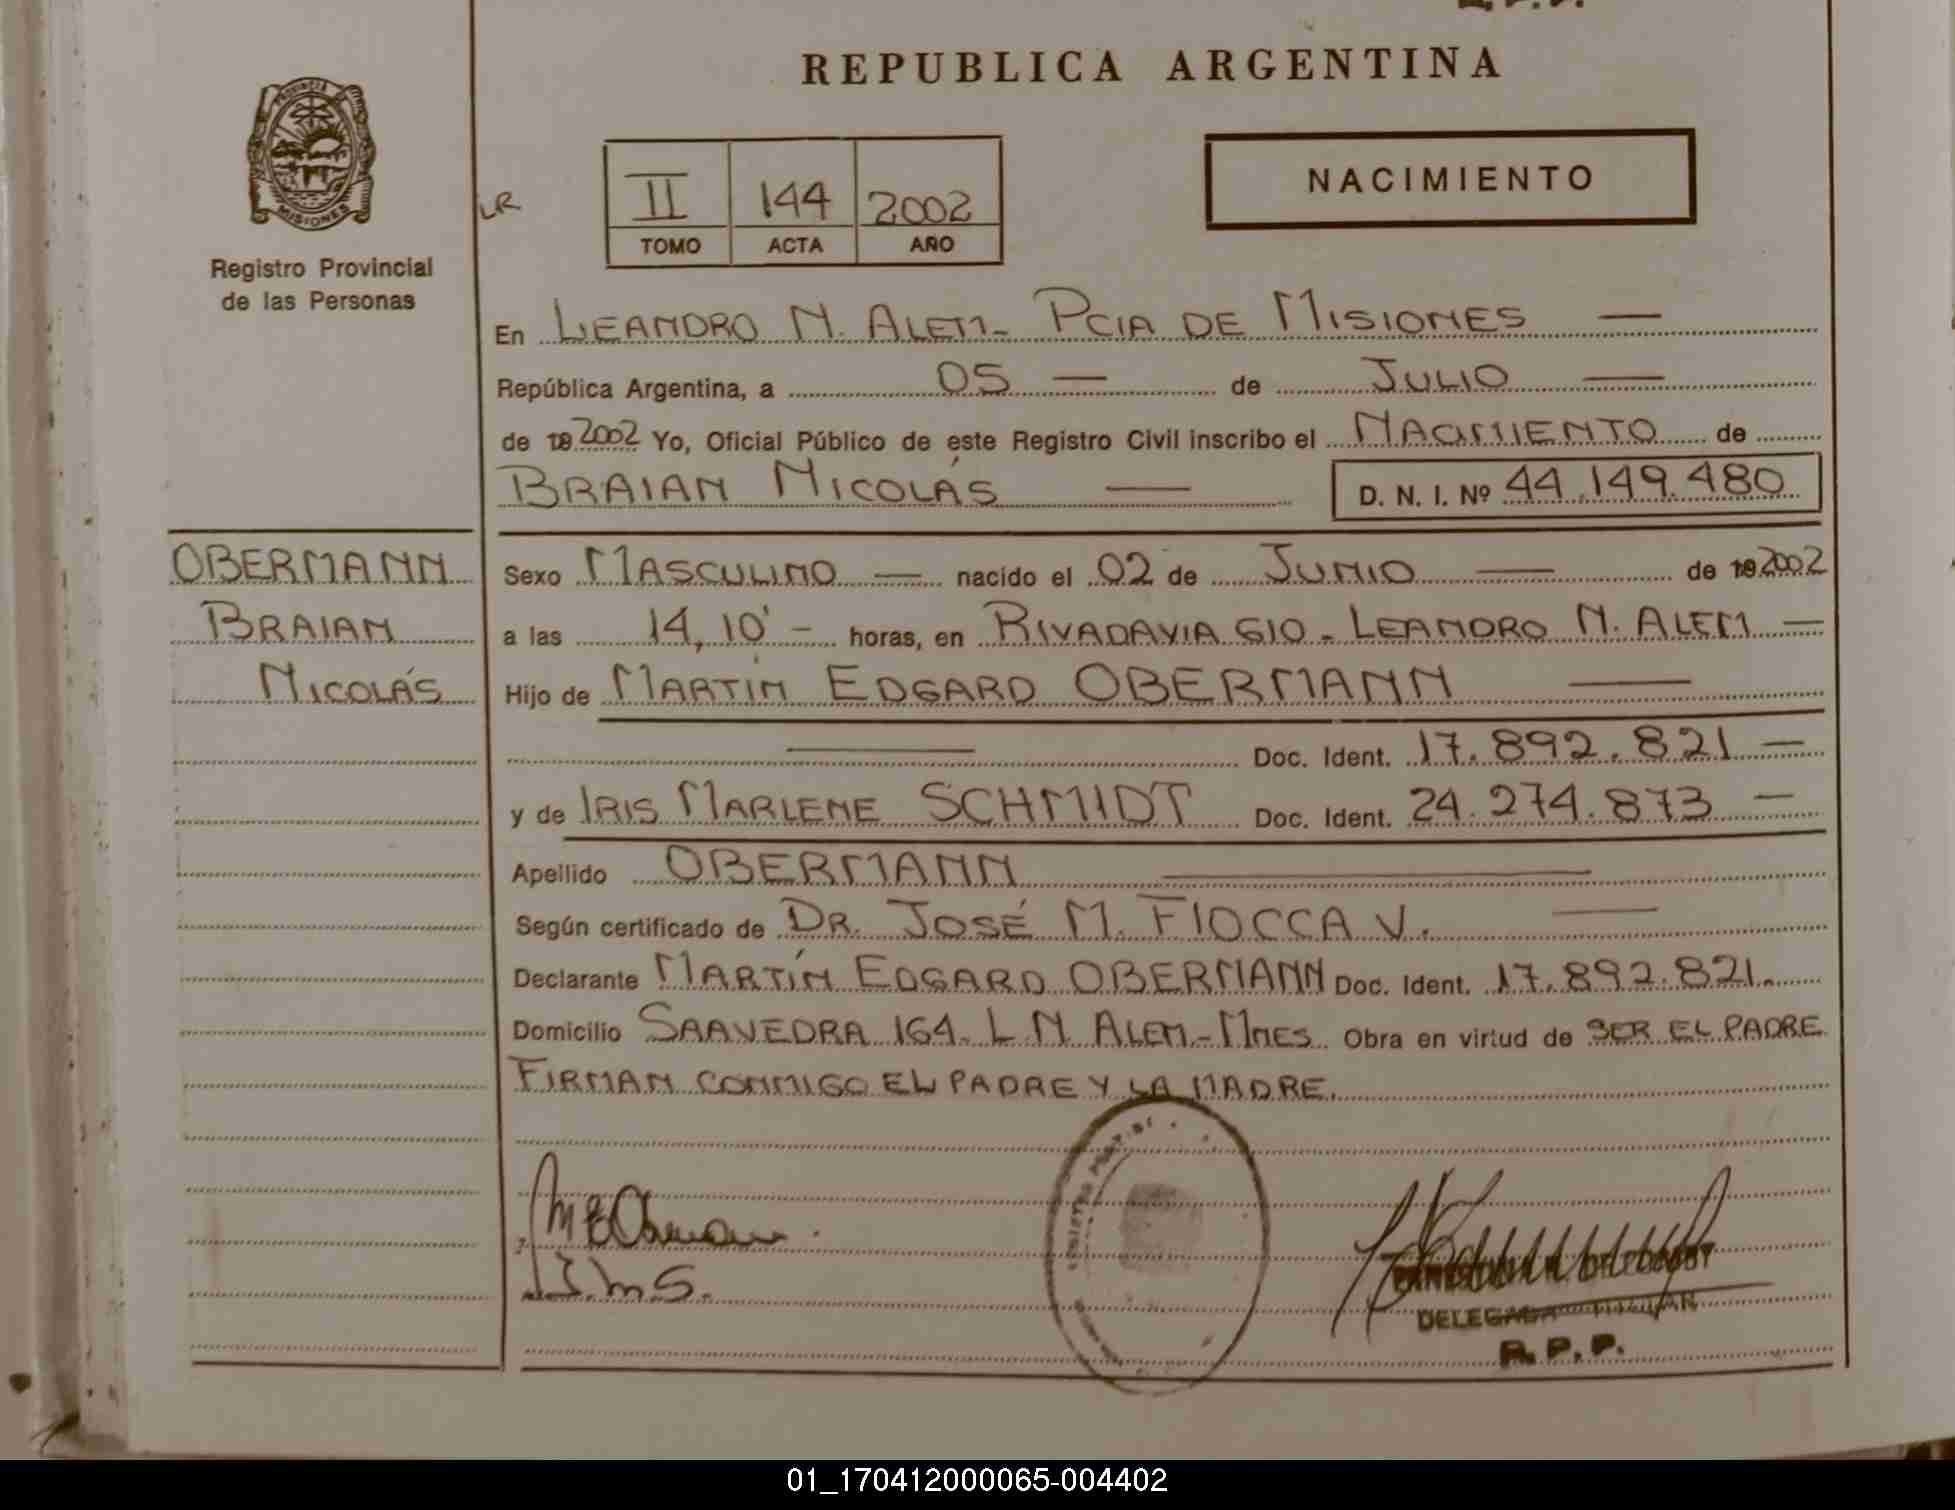 REPUBLICA ARGENTINA
PROVINCIA DE
MISIONES
Registro Provincial
de las Personas
LR
II 144 2002
TOMO ACTA AÑO
NACIMIENTO
En LEANDRO N. ALEM - PCIA DE MISIONES —
República Argentina, a 05 — de JULIO —
de 19 2002 Yo, Oficial Público de este Registro Civil inscribo el NACIMIENTO de
BRAIAN NICOLÁS — D. N. I. Nº 44.149.480
OBERMANN
BRAIAN
NICOLÁS
Sexo MASCULINO — nacido el 02 de JUNIO — de 19 2002
a las 14,10' — horas, en RIVADAVIA 610 - LEANDRO N. ALEM —
Hijo de MARTÍN EDGARD OBERMANN —
— Doc. Ident. 17.892.821 —
y de IRIS MARLENE SCHMIDT Doc. Ident. 24.274.873 —
Apellido OBERMANN —
Según certificado de DR. JOSÉ M. FIOCCA V. —
Declarante MARTÍN EDGARD OBERMANN Doc. Ident. 17.892.821.
Domicilio SAAVEDRA 164. L. N. ALEM - MNES. Obra en virtud de SER EL PADRE
FIRMAN CONMIGO EL PADRE Y LA MADRE.
I.M.S.
DELEGADA
R. P. P.
01_170412000065-004402